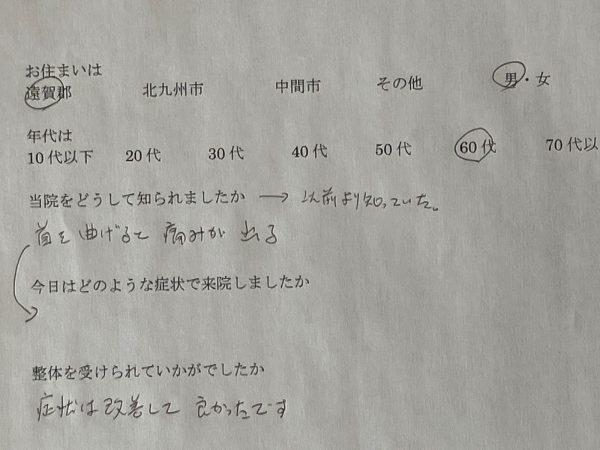 お住まいは
遠賀郡 北九州市 中間市 その他 男・女
年代は
10代以下 20代 30代 40代 50代 60代 70代以
当院をどうして知られましたか → 以前より知っていた。
首を曲げると痛みが出る
今日はどのような症状で来院しましたか
整体を受けられていかがでしたか
症状は改善して良かったです